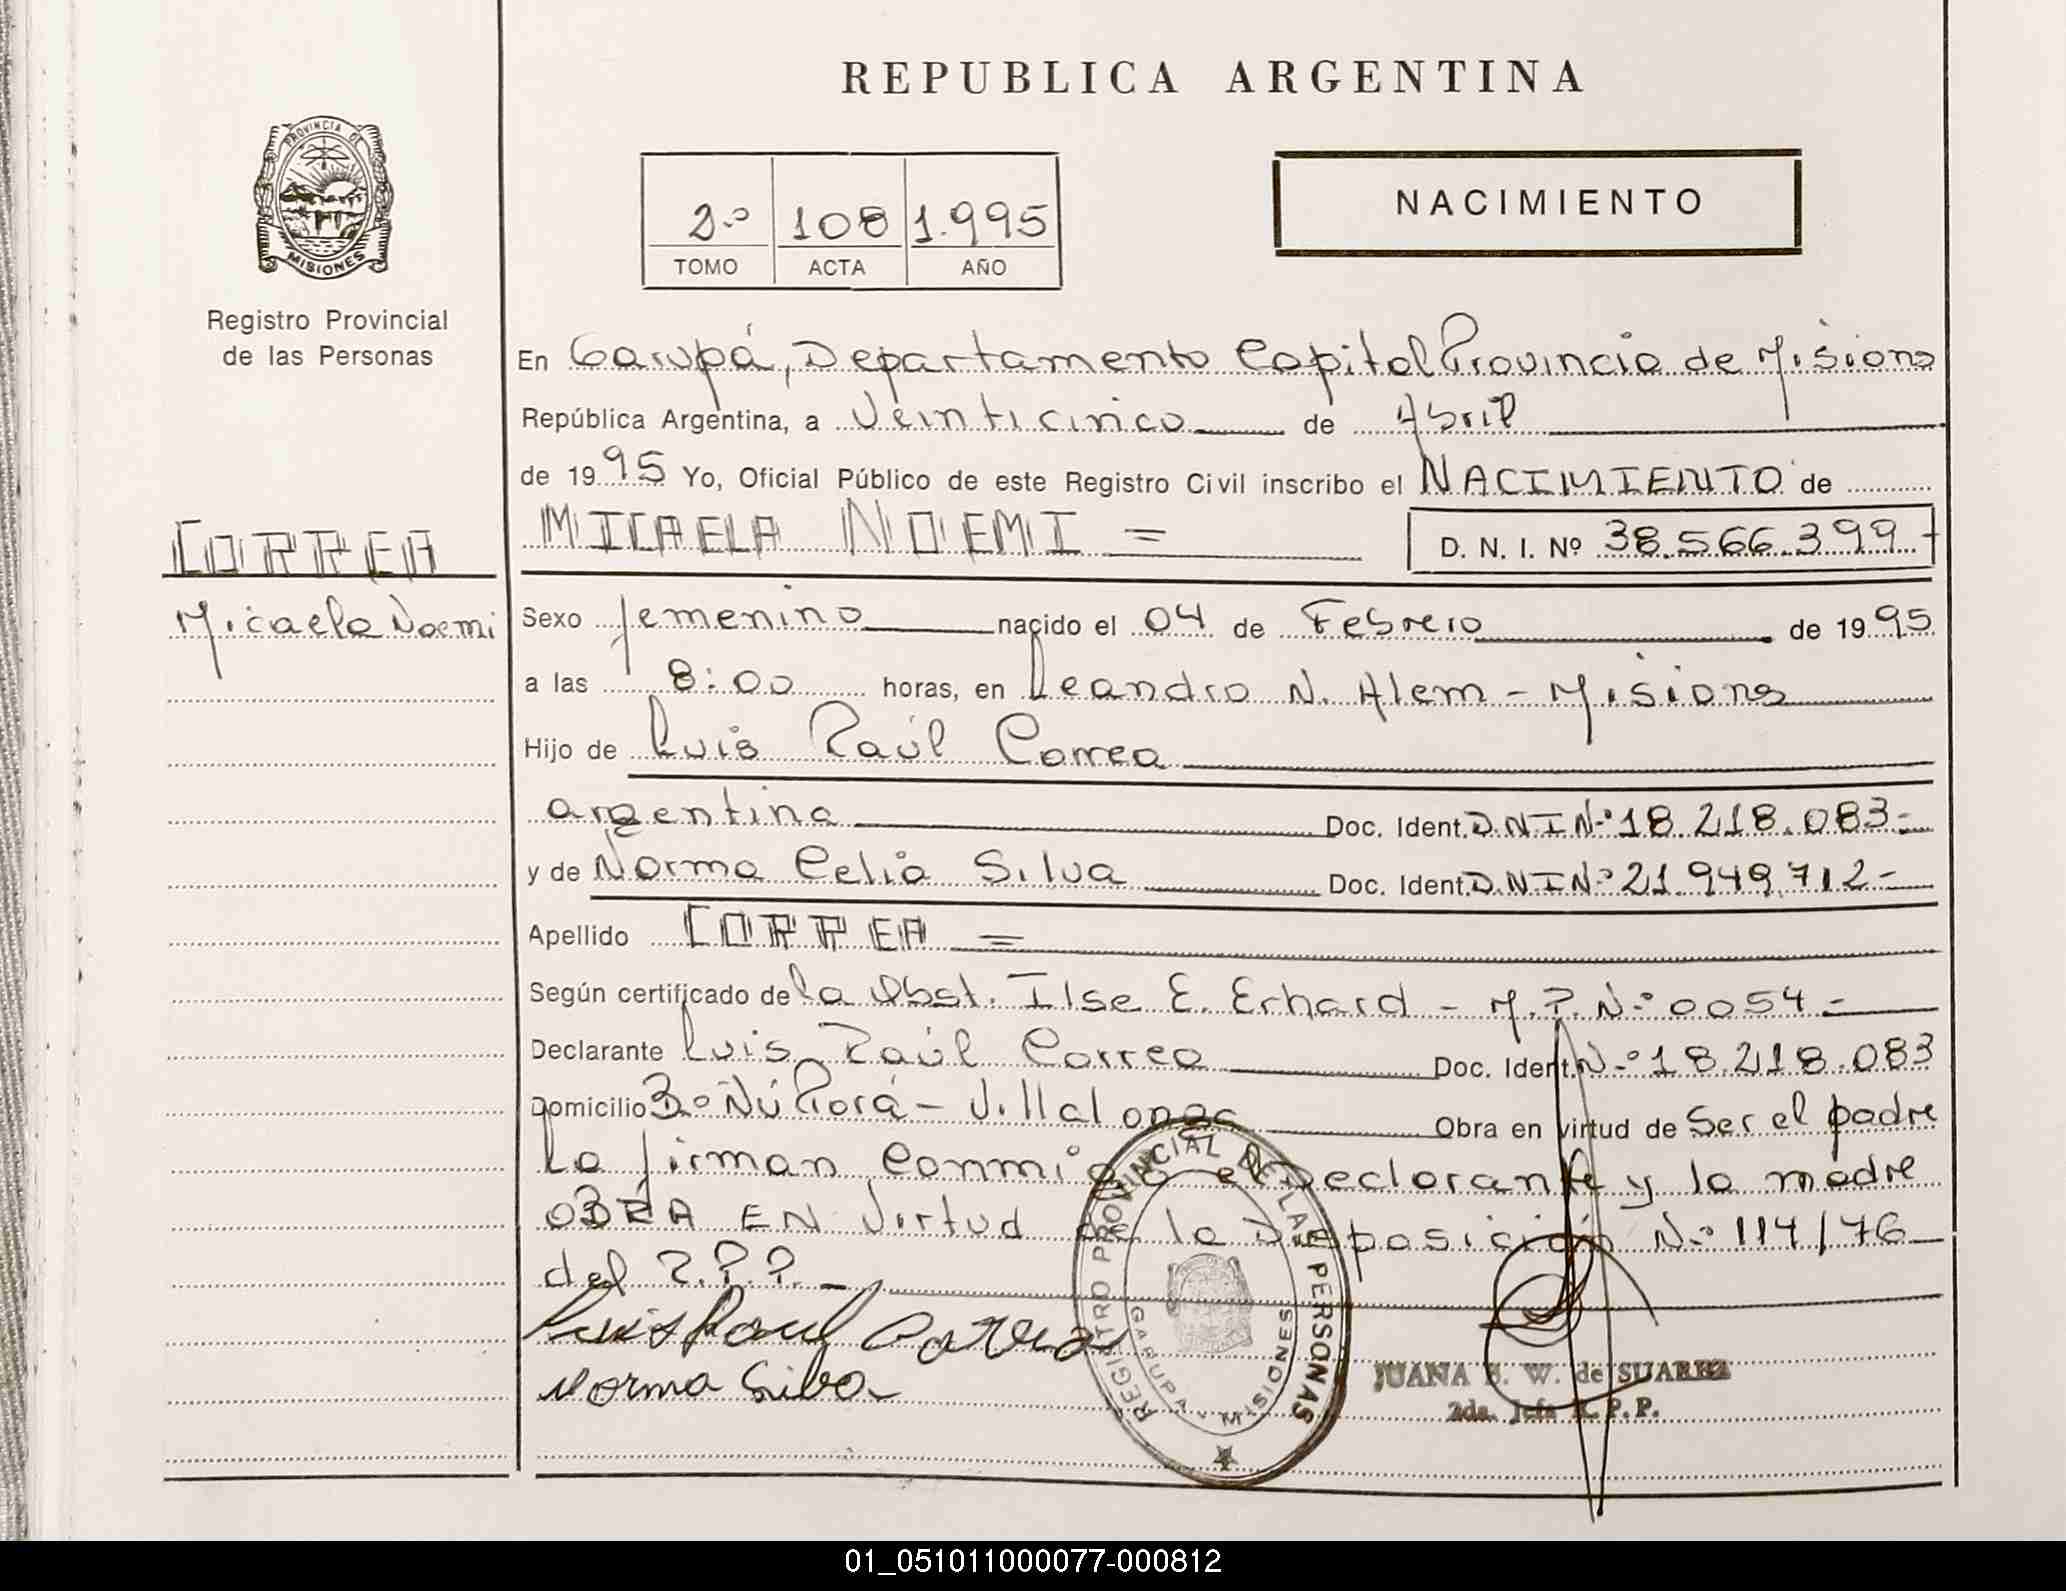 REPUBLICA ARGENTINA
PROVINCIA DE
MISIONES
Registro Provincial
de las Personas
2.º 108 1.995
TOMO ACTA AÑO
NACIMIENTO
En Garupá, Departamento Capital Provincia de Misiones
República Argentina, a Veinticinco de Abril
de 19 95 Yo, Oficial Público de este Registro Civil inscribo el NACIMIENTO de
CORREA
Micaela Noemi
MICAELA NOEMI =
D. N. I. Nº 38.566.399
Sexo femenino nacido el 04 de Febrero de 19 95
a las 8:00 horas, en Leandro N. Alem - Misiones
Hijo de Luis Raúl Correa
argentina Doc. Ident. D.N.I N.º 18.218.083-
y de Norma Celia Silva Doc. Ident. D.N.I N.º 21.949.712-
Apellido CORREA =
Según certificado de la Obst. Ilse E. Erhard - M.P. N.º 0054-
Declarante Luis Raúl Correa Doc. Ident. N.º 18.218.083
Domicilio Bº Ñú Porá - Villalonga Obra en virtud de Ser el padre
La firman conmigo el Declarante y la madre
OBRA EN Virtud de la Disposición N.º 114/76
del R.P.P. -
Luis Raul Correa
Norma Silva
REGISTRO PROVINCIAL DE LAS PERSONAS
GARUPA - MISIONES
JUANA W. de SUAREZ
2da. Jefa R. P. P.
01_051011000077-000812